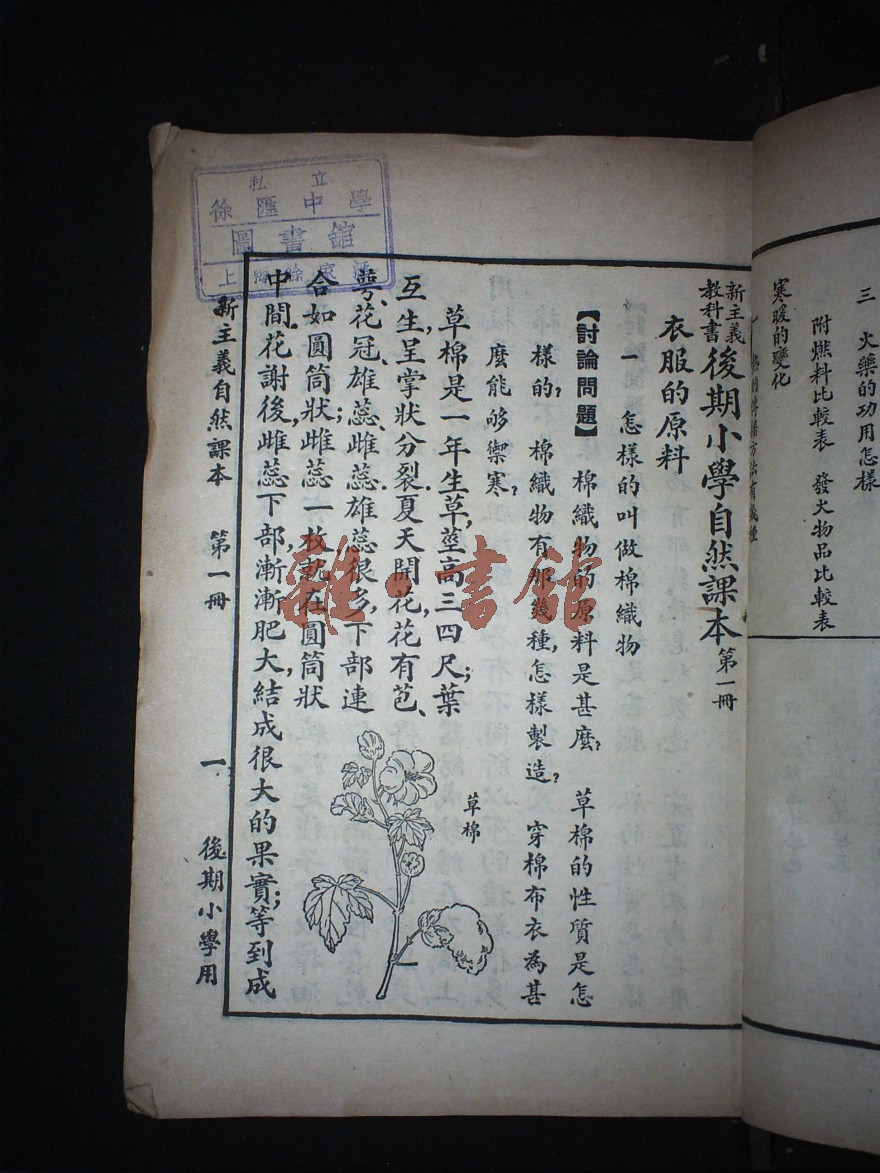 三 火藥的功用怎樣
附燃料比較表 發火物品比較表
寒暖的變化
新主義
教科書
後期小學自然課本 第一冊
衣服的原料
一 怎樣的叫做棉織物
【討論問題】 棉織物的原料是甚麼? 草棉的性質是怎
樣的? 棉織物有那幾種,怎樣製造? 穿棉布衣為甚
麼能够禦寒?
草棉是一年生草,莖高三四尺;葉
互生,呈掌狀分裂.夏天開花,花有苞、
萼、花冠、雄蕊、雌蕊.雄蕊很多,下部連
合如圓筒狀;雌蕊一枚,就在圓筒狀
中間.花謝後,雌蕊下部,漸漸肥大,結成很大的果實;等到成
草棉
新主義自然課本 第一冊 一 後期小學用
私立
徐匯中學
圖書館
上海徐家匯
雜·書館